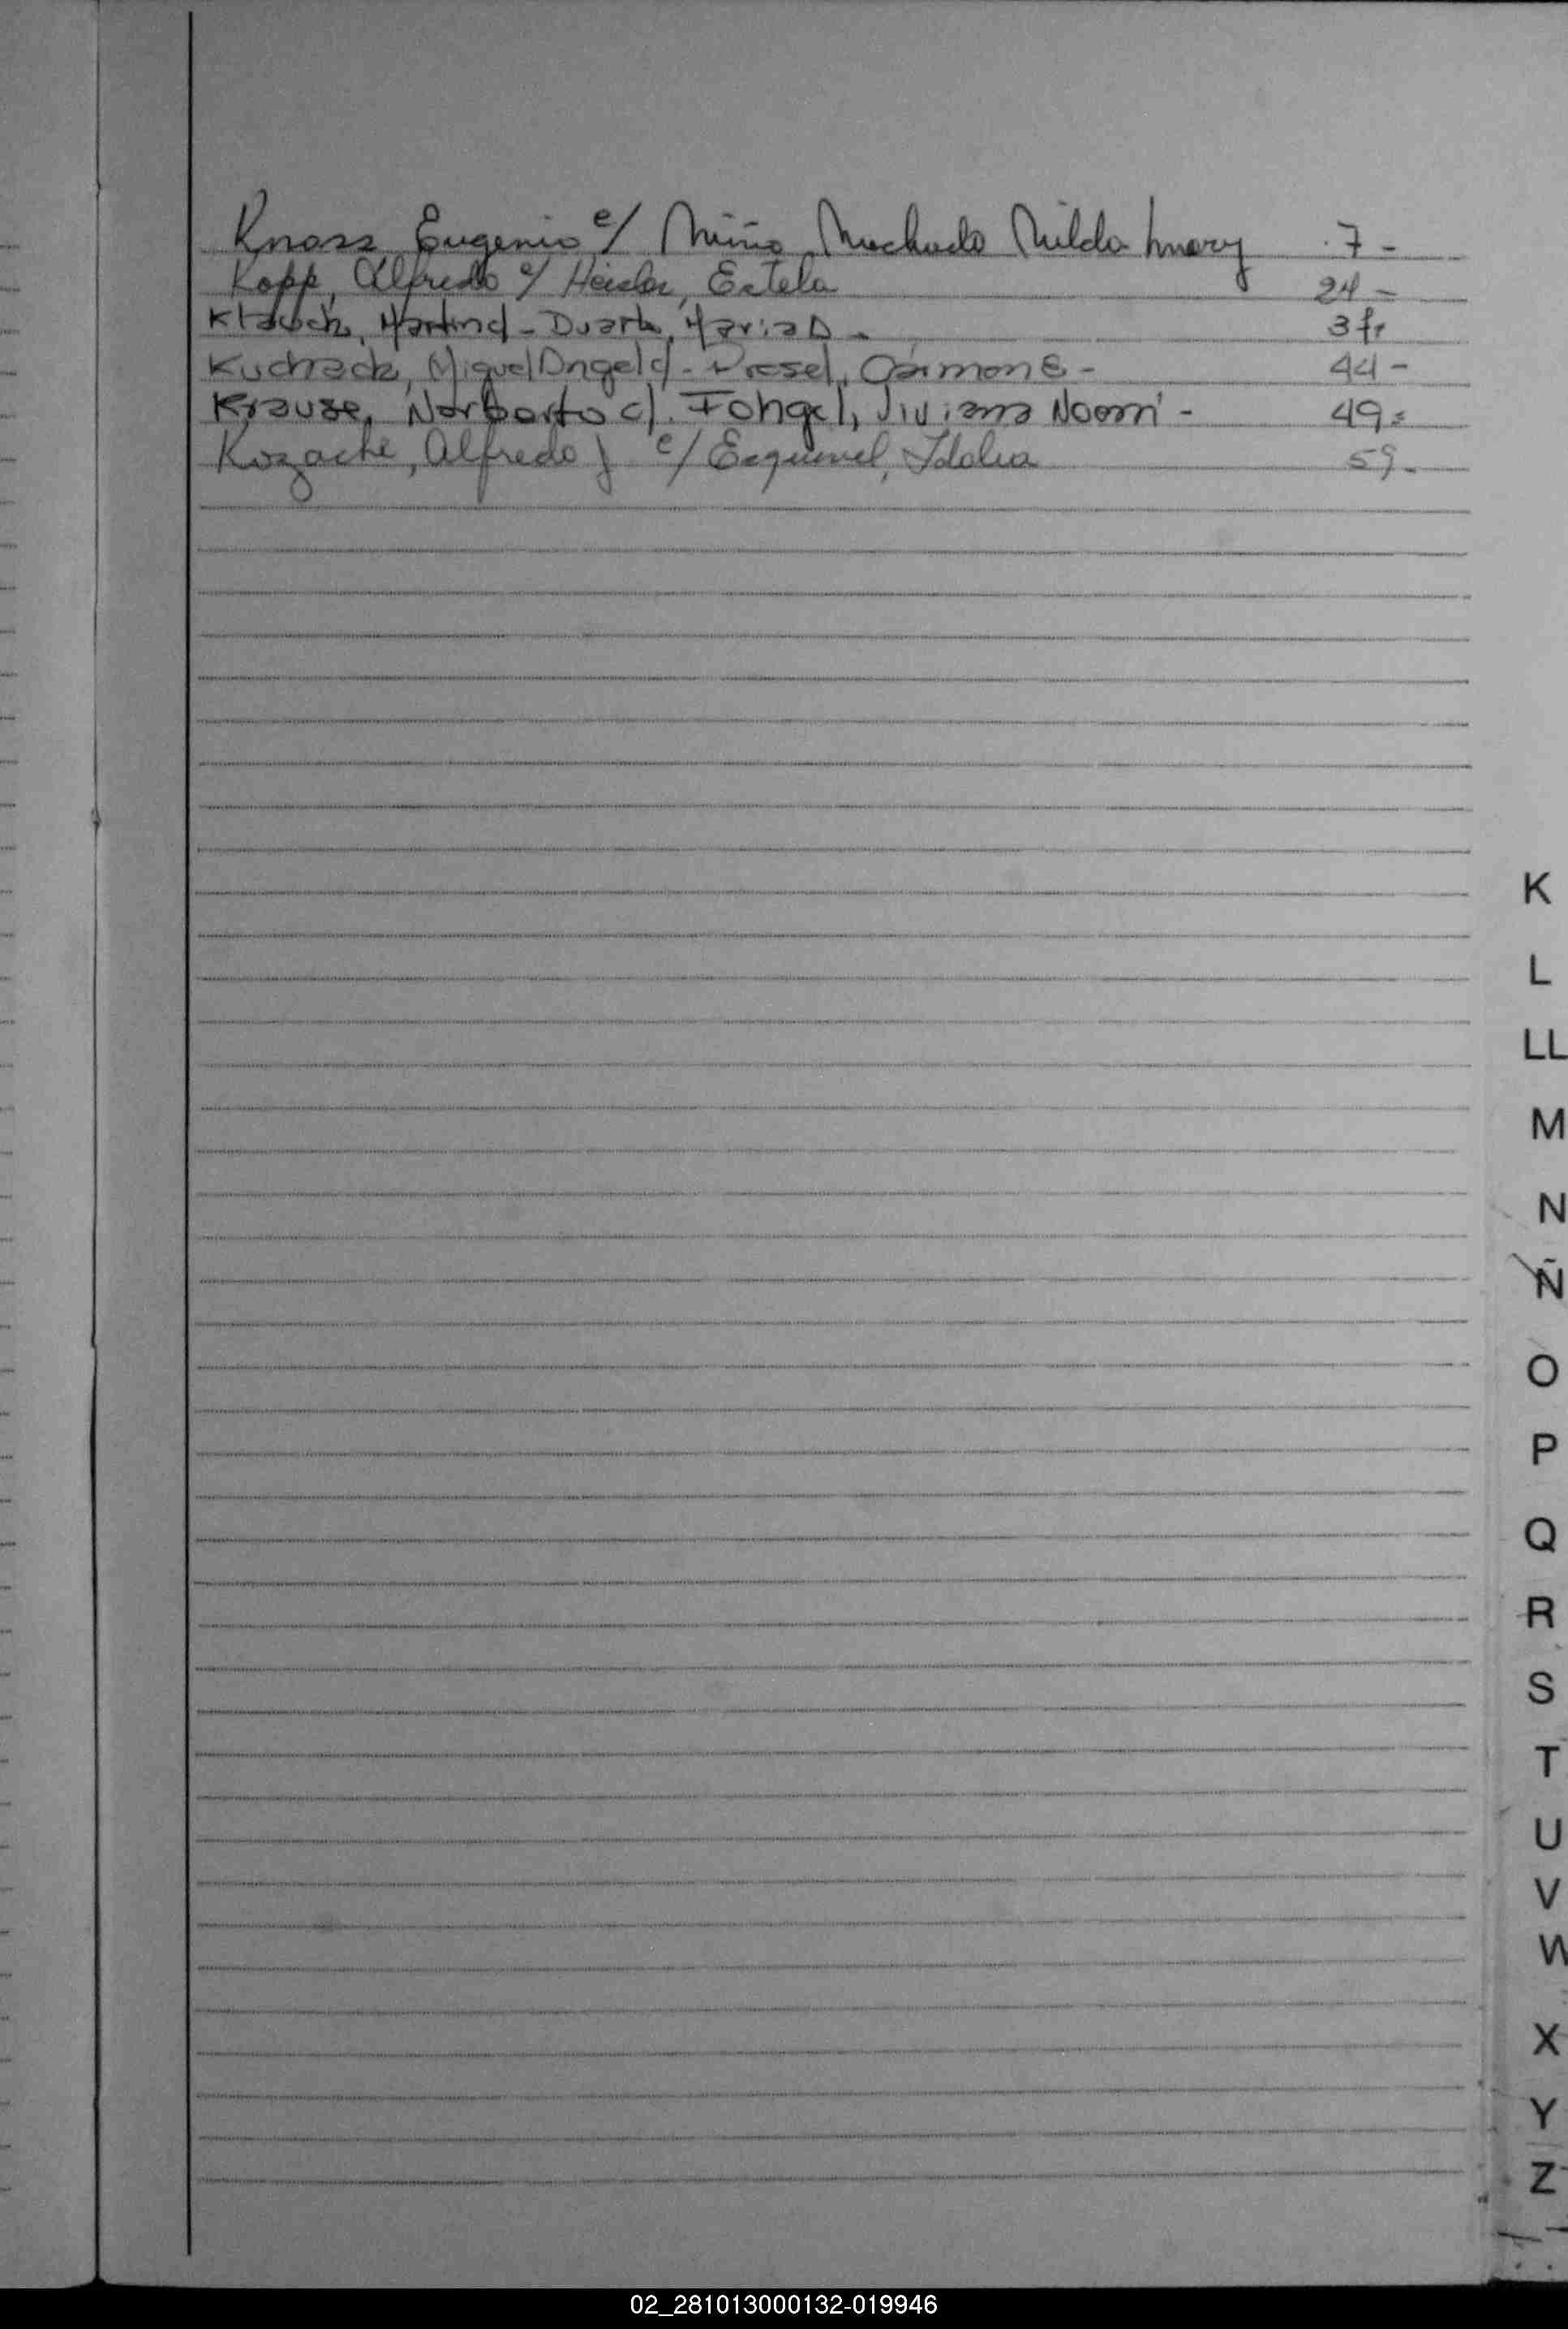 Knass Eugenio c/ Niño Machado Nilda Mary 7-
Kopp, Alfredo c/ Heisler, Estela 24-
Klauch, Martin c/- Duarte, Maria D- 3f1
Miguel Angel c/- Carmen E- 44-
Krause, Norberto c/. Viviana Noemi- 49=
Kozache, Alfredo J c/ Esquivel, Idalia 59-
K
L
LL
M
N
Ñ
O
P
Q
R
S
T
U
V
W
X
Y
Z
02_281013000132-019946